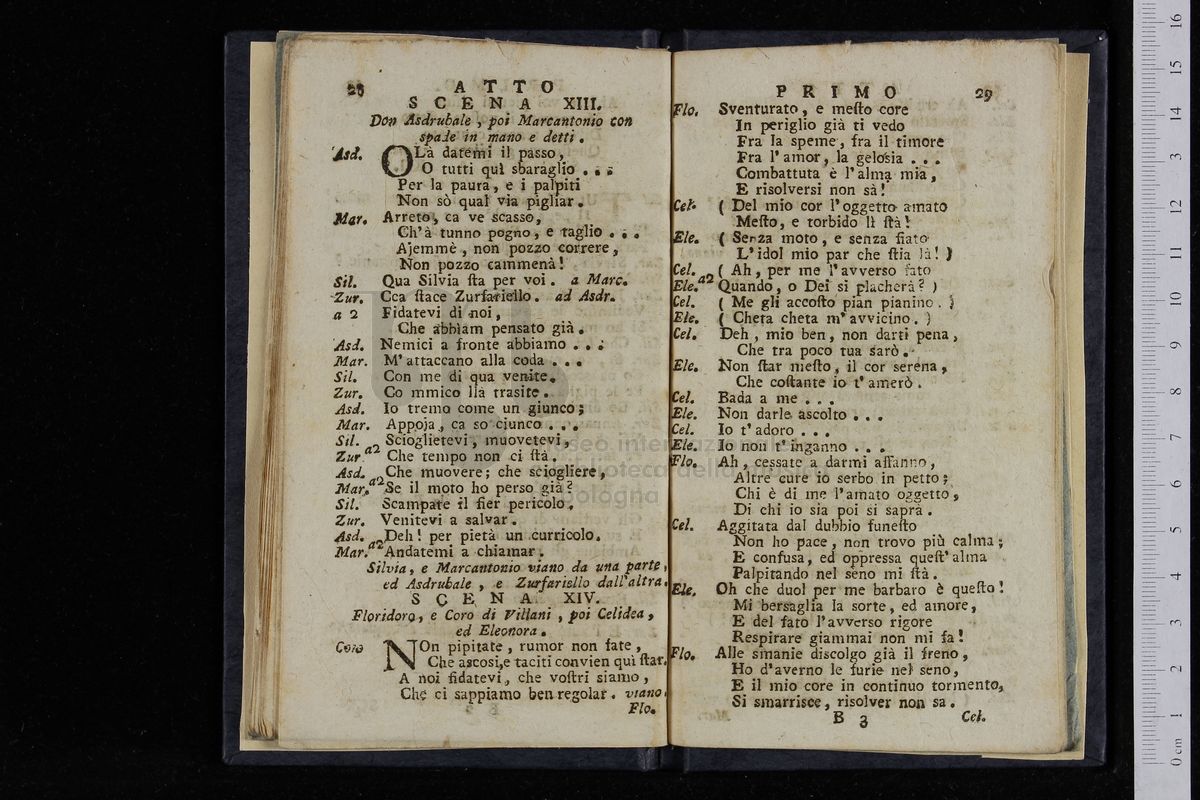 28
ATTO
SCENA XIII.
Don Asdrubale, poi Marcantonio con
spade in mano e detti.
Asd. OLà datemi il passo,
O tutti quì sbaraglio . . .
Per la paura, e i palpiti
Non sò qual via pigliar.
Mar. Arreto, ca ve scasso,
Ch'à tunno pogno, e taglio . . .
Ajemmè, non pozzo correre,
Non pozzo cammenà!
Sil. Qua Silvia ſta per voi. a Marc.
Zur. Cca ſtace Zurfariello. ad Asdr.
a 2 Fidatevi di noi,
Che abbiam pensato già.
Asd. Nemici a fronte abbiamo . . .
Mar. M'attaccano alla coda . . .
Sil. Con me di qua venite.
Zur. Co mmico lla trasite.
Asd. Io tremo come un giunco;
Mar. Appoja, ca so ciunco . . .
Sil. Scioglietevi, muovetevi,
Zur. a2 Che tempo non ci ſtà.
Asd. Che muovere; che sciogliere,
Mar. a2 Se il moto ho perso già?
Sil. Scampate il fier pericolo,
Zur. Venitevi a salvar.
Asd. Deh! per pietà un curricolo.
Mar. a2 Andatemi a chiamar.
Silvia, e Marcantonio viano da una parte,
ed Asdrubale, e Zurfariello dall'altra.
SCENA XIV.
Floridoro, e Coro di Villani, poi Celidea,
ed Eleonora.
Coro NOn pipitate, rumor non fate,
Che ascosi,e taciti convien quì ſtar.
A noi fidatevi, che voſtri siamo,
Che ci sappiamo ben regolar. viano.
Flo.
PRIMO
29
Flo. Sventurato, e meſto core
In periglio già ti vedo
Fra la speme, fra il timore
Fra l'amor, la gelosia . . .
Combattuta è l'alma mia,
E risolversi non sà!
Cel. ( Del mio cor l'oggetto amato
Meſto, e torbido lì ſtà!
Ele. ( Senza moto, e senza fiato
L'idol mio par che ſtia là! )
Cel. ( Ah, per me l'avverso fato
Ele. a2 Quando, o Dei si placherà? )
Cel. ( Me gli accoſto pian pianino. )
Ele. ( Cheta cheta m'avvicino. )
Cel. Deh, mio ben, non darti pena,
Che tra poco tua sarò.
Ele. Non ſtar meſto, il cor serena,
Che coſtante io t'amerò.
Cel. Bada a me . . .
Ele. Non darle ascolto . . .
Cel. Io t'adoro . . .
Ele. Io non t'inganno . . .
Flo. Ah, cessate a darmi affanno,
Altre cure io serbo in petto;
Chi è di me l'amato oggetto,
Di chi io sia poi si saprà.
Cel. Aggitata dal dubbio funeſto
Non ho pace, non trovo più calma;
E confusa, ed oppressa queſt'alma
Palpitando nel seno mi ſtà.
Ele. Oh che duol per me barbaro è queſto!
Mi bersaglia la sorte, ed amore,
E del fato l'avverso rigore
Respirare giammai non mi fa!
Flo. Alle smanie discolgo già il freno,
Ho d'averno le furie nel seno,
E il mio core in continuo tormento,
Si smarrisce, risolver non sa.
B 3
Cel.
museo internazionale
biblioteca della musica
bologna
0 cm 1 2 3 4 5 6 7 8 9 10 11 12 13 14 15 16